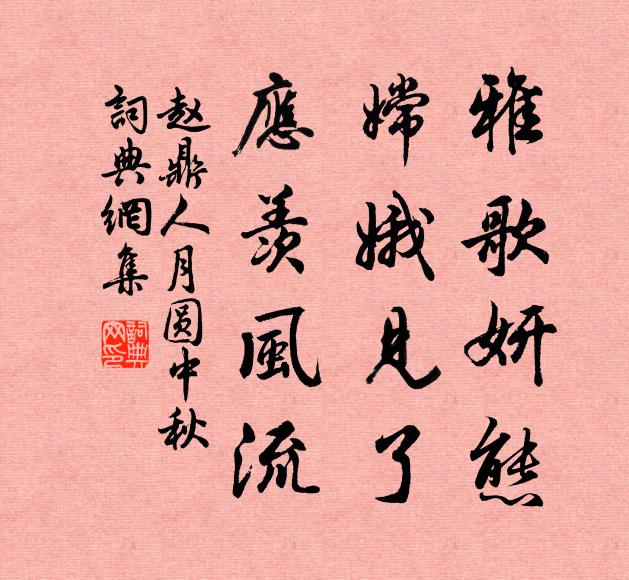 雅歌妍態
嫦娥見了
應羨風流
赵鼎人月圆中秋
詞典網集
詞典网印